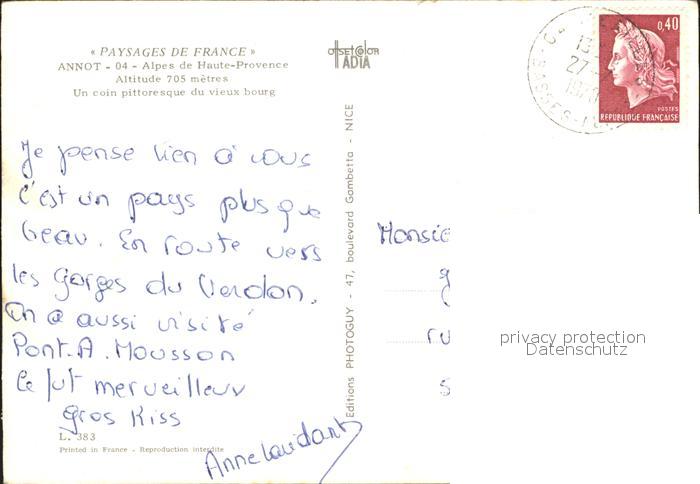 « PAYSAGES DE FRANCE »
ANNOT - 04 - Alpes de Haute-Provence
Altitude 705 mètres
Un coin pittoresque du vieux bourg
offset color
ADIA
0,40
POSTES
REPUBLIQUE FRANÇAISE
13
27
BASSES-
Je pense bien à vous
C'est un pays plus que
beau. En route vers
les Gorges du Verdon.
On a aussi visité
Pont.A.Mousson
Ce fut merveilleux
gros Kiss
Anne
L. 383
Printed in France - Reproduction interdite
Editions PHOTOGUY - 47, boulevard Gambetta - NICE
Monsie
g
ru
S
privacy protection
Datenschutz